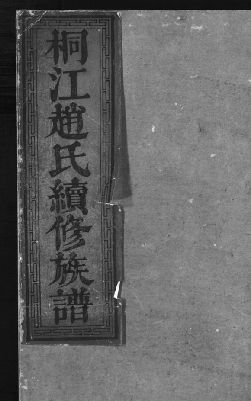 桐江趙氏續修族譜